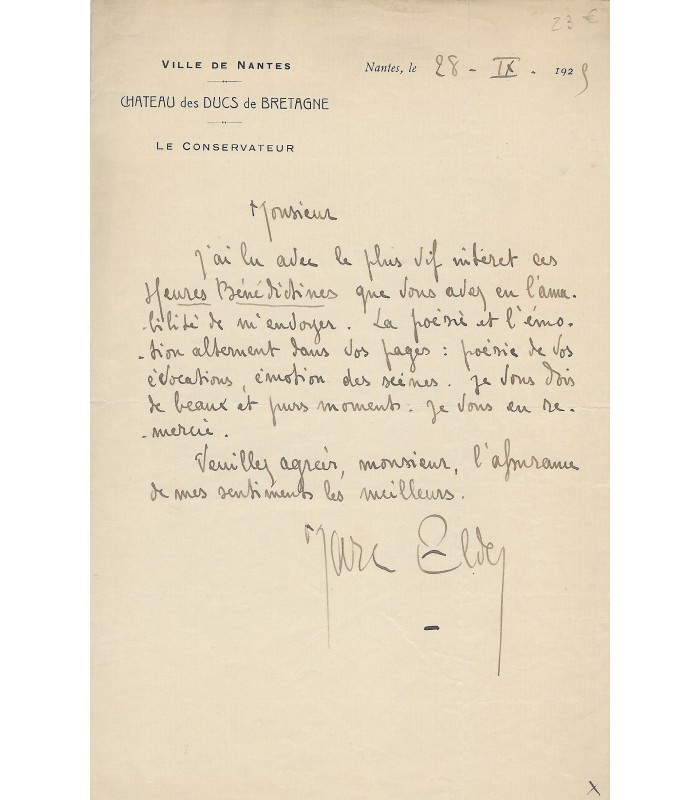 23 €
VILLE DE NANTES
Nantes, le 28 - IX . 1925
CHATEAU des DUCS de BRETAGNE
LE CONSERVATEUR
Monsieur
J'ai lu avec le plus vif intéret ces
Heures Bénédictines que vous avez en l'ama-
-bilité de m'envoyer. La poésie et l'émo-
-tion alternent dans vos pages : poésie de vos
évocations, émotion des scènes. Je vous dois
de beaux et purs moments. Je vous en re-
-mercie.
Veuillez agréer, monsieur, l'assurance
de mes sentiments les meilleurs.
Marc Elder
x